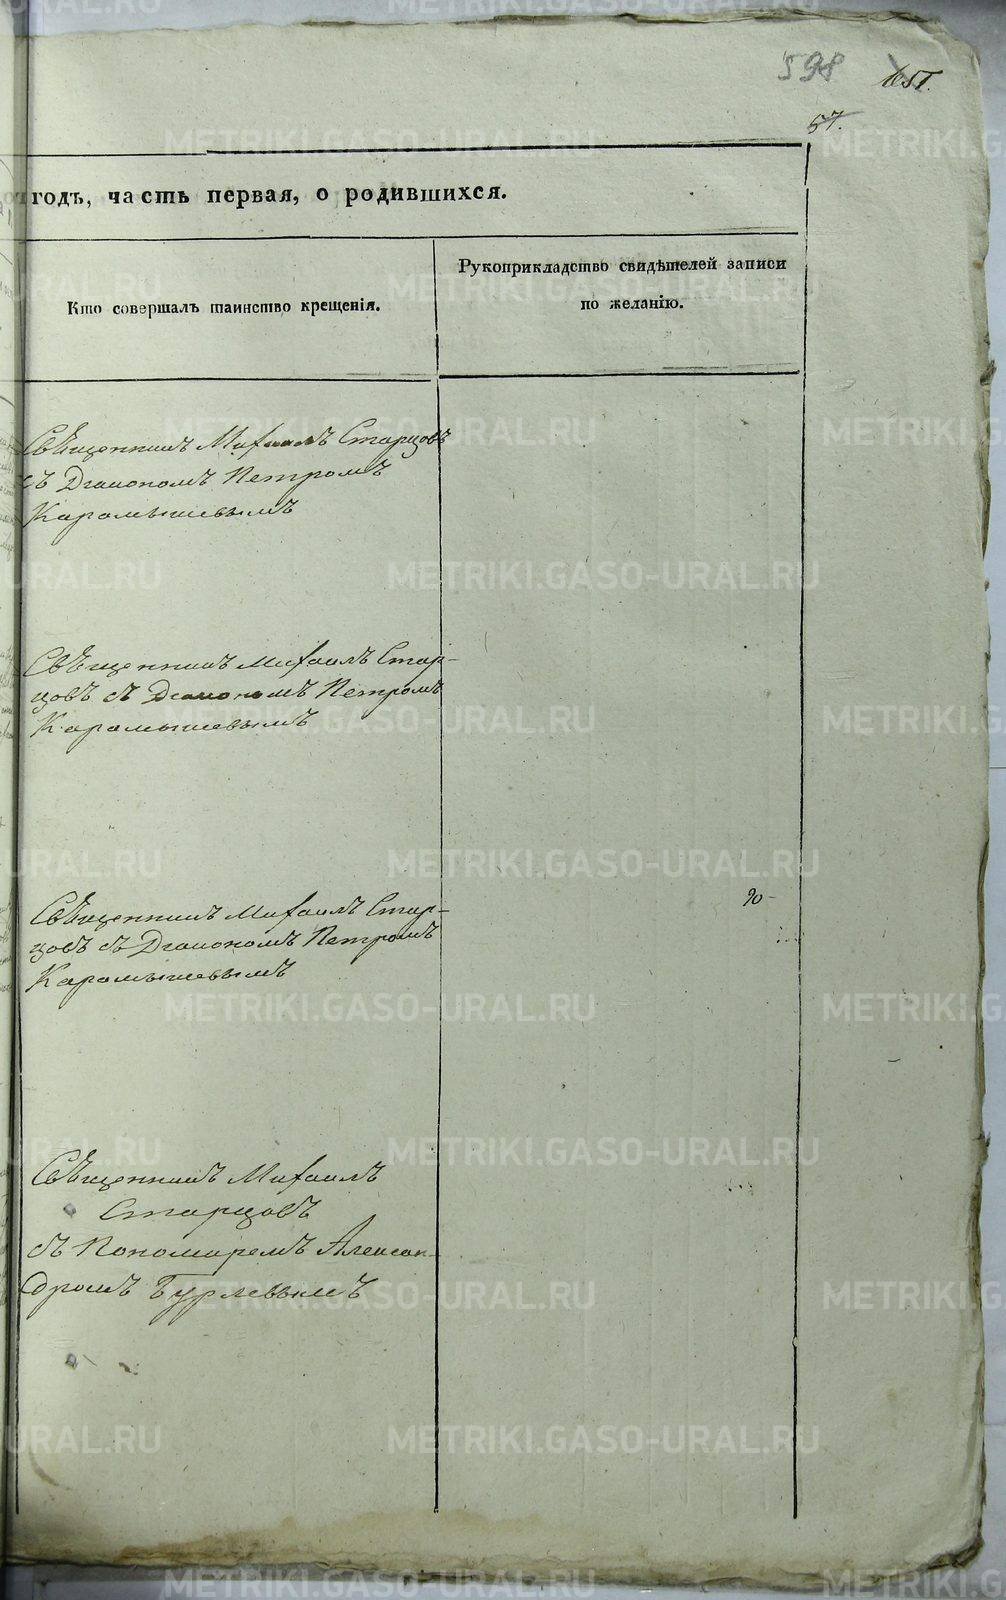 598
57.
годъ, часть первая, о родившихся.
Кто совершалъ таинство крещенія.
Рукоприкладство свидѣтелей записи
по желанію.
Священникъ Михаилъ Старцовъ
съ Діакономъ Петромъ
Карамышевымъ
Священникъ Михаилъ Стар-
цовъ съ Діакономъ Петромъ
Карамышевымъ
Священникъ Михаилъ Стар-
цовъ съ Діакономъ Петромъ
Карамышевымъ
Священникъ Михаилъ
Старцовъ
съ Пономаремъ Алексан-
дромъ
METRIKI.GASO-URAL.RU